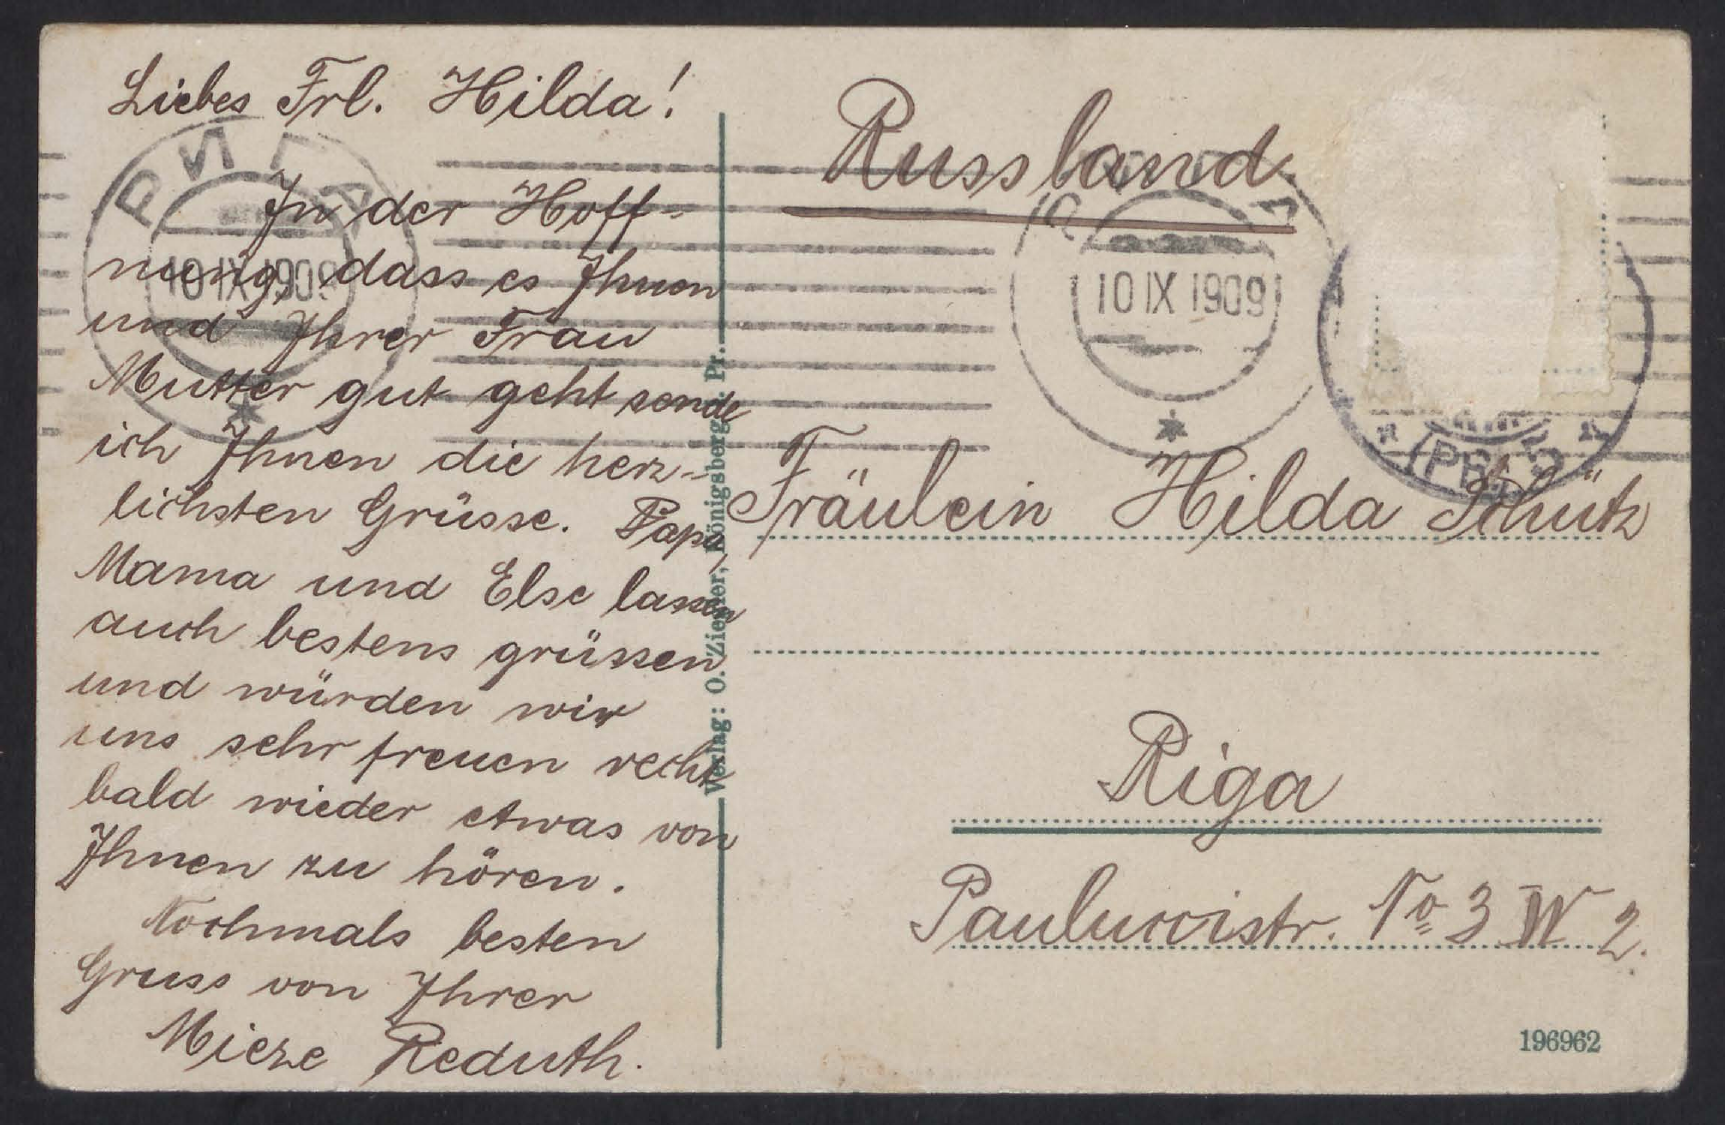 Liebes Frl. Hilda!
In der Hoff-
nung, dass es Ihnen
und Ihrer Frau
Mutter gut geht sende
ich Ihnen die herz-
lichsten Grüsse. Papa,
Mama und Else lassen
auch bestens grüssen
und würden wir
uns sehr freuen recht
bald wieder etwas von
Ihnen zu hören.
Nochmals besten
Gruss von Ihrer
Mieze Reduth.
РИГА
10 IX 1909
Verlag: O. Ziegler, Königsberg i. Pr.
Russland
10 IX 1909
(PR)
Fräulein Hilda Schütz
Riga
Pauluccistr. No 3 W 2.
196962